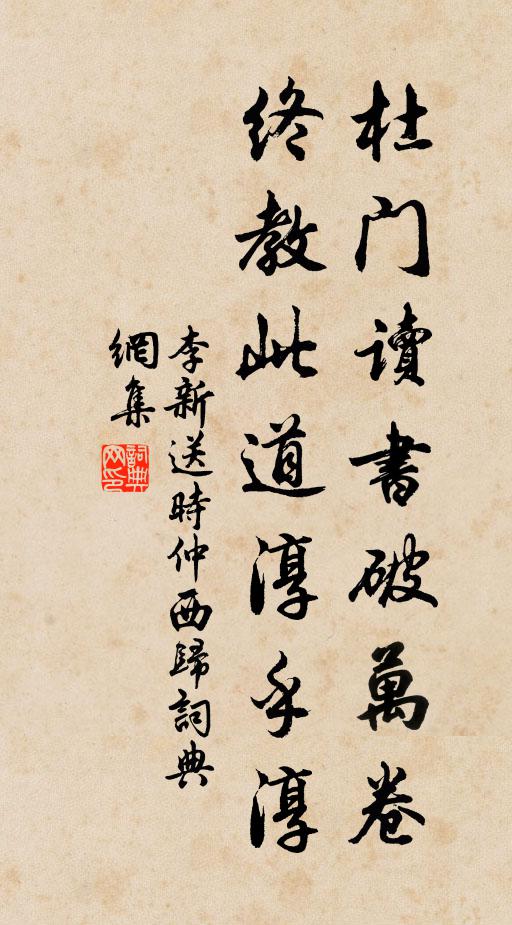 杜門讀書破萬卷
終教此道淳乎淳
李新送時仲西歸詞典
網集
詞典網印